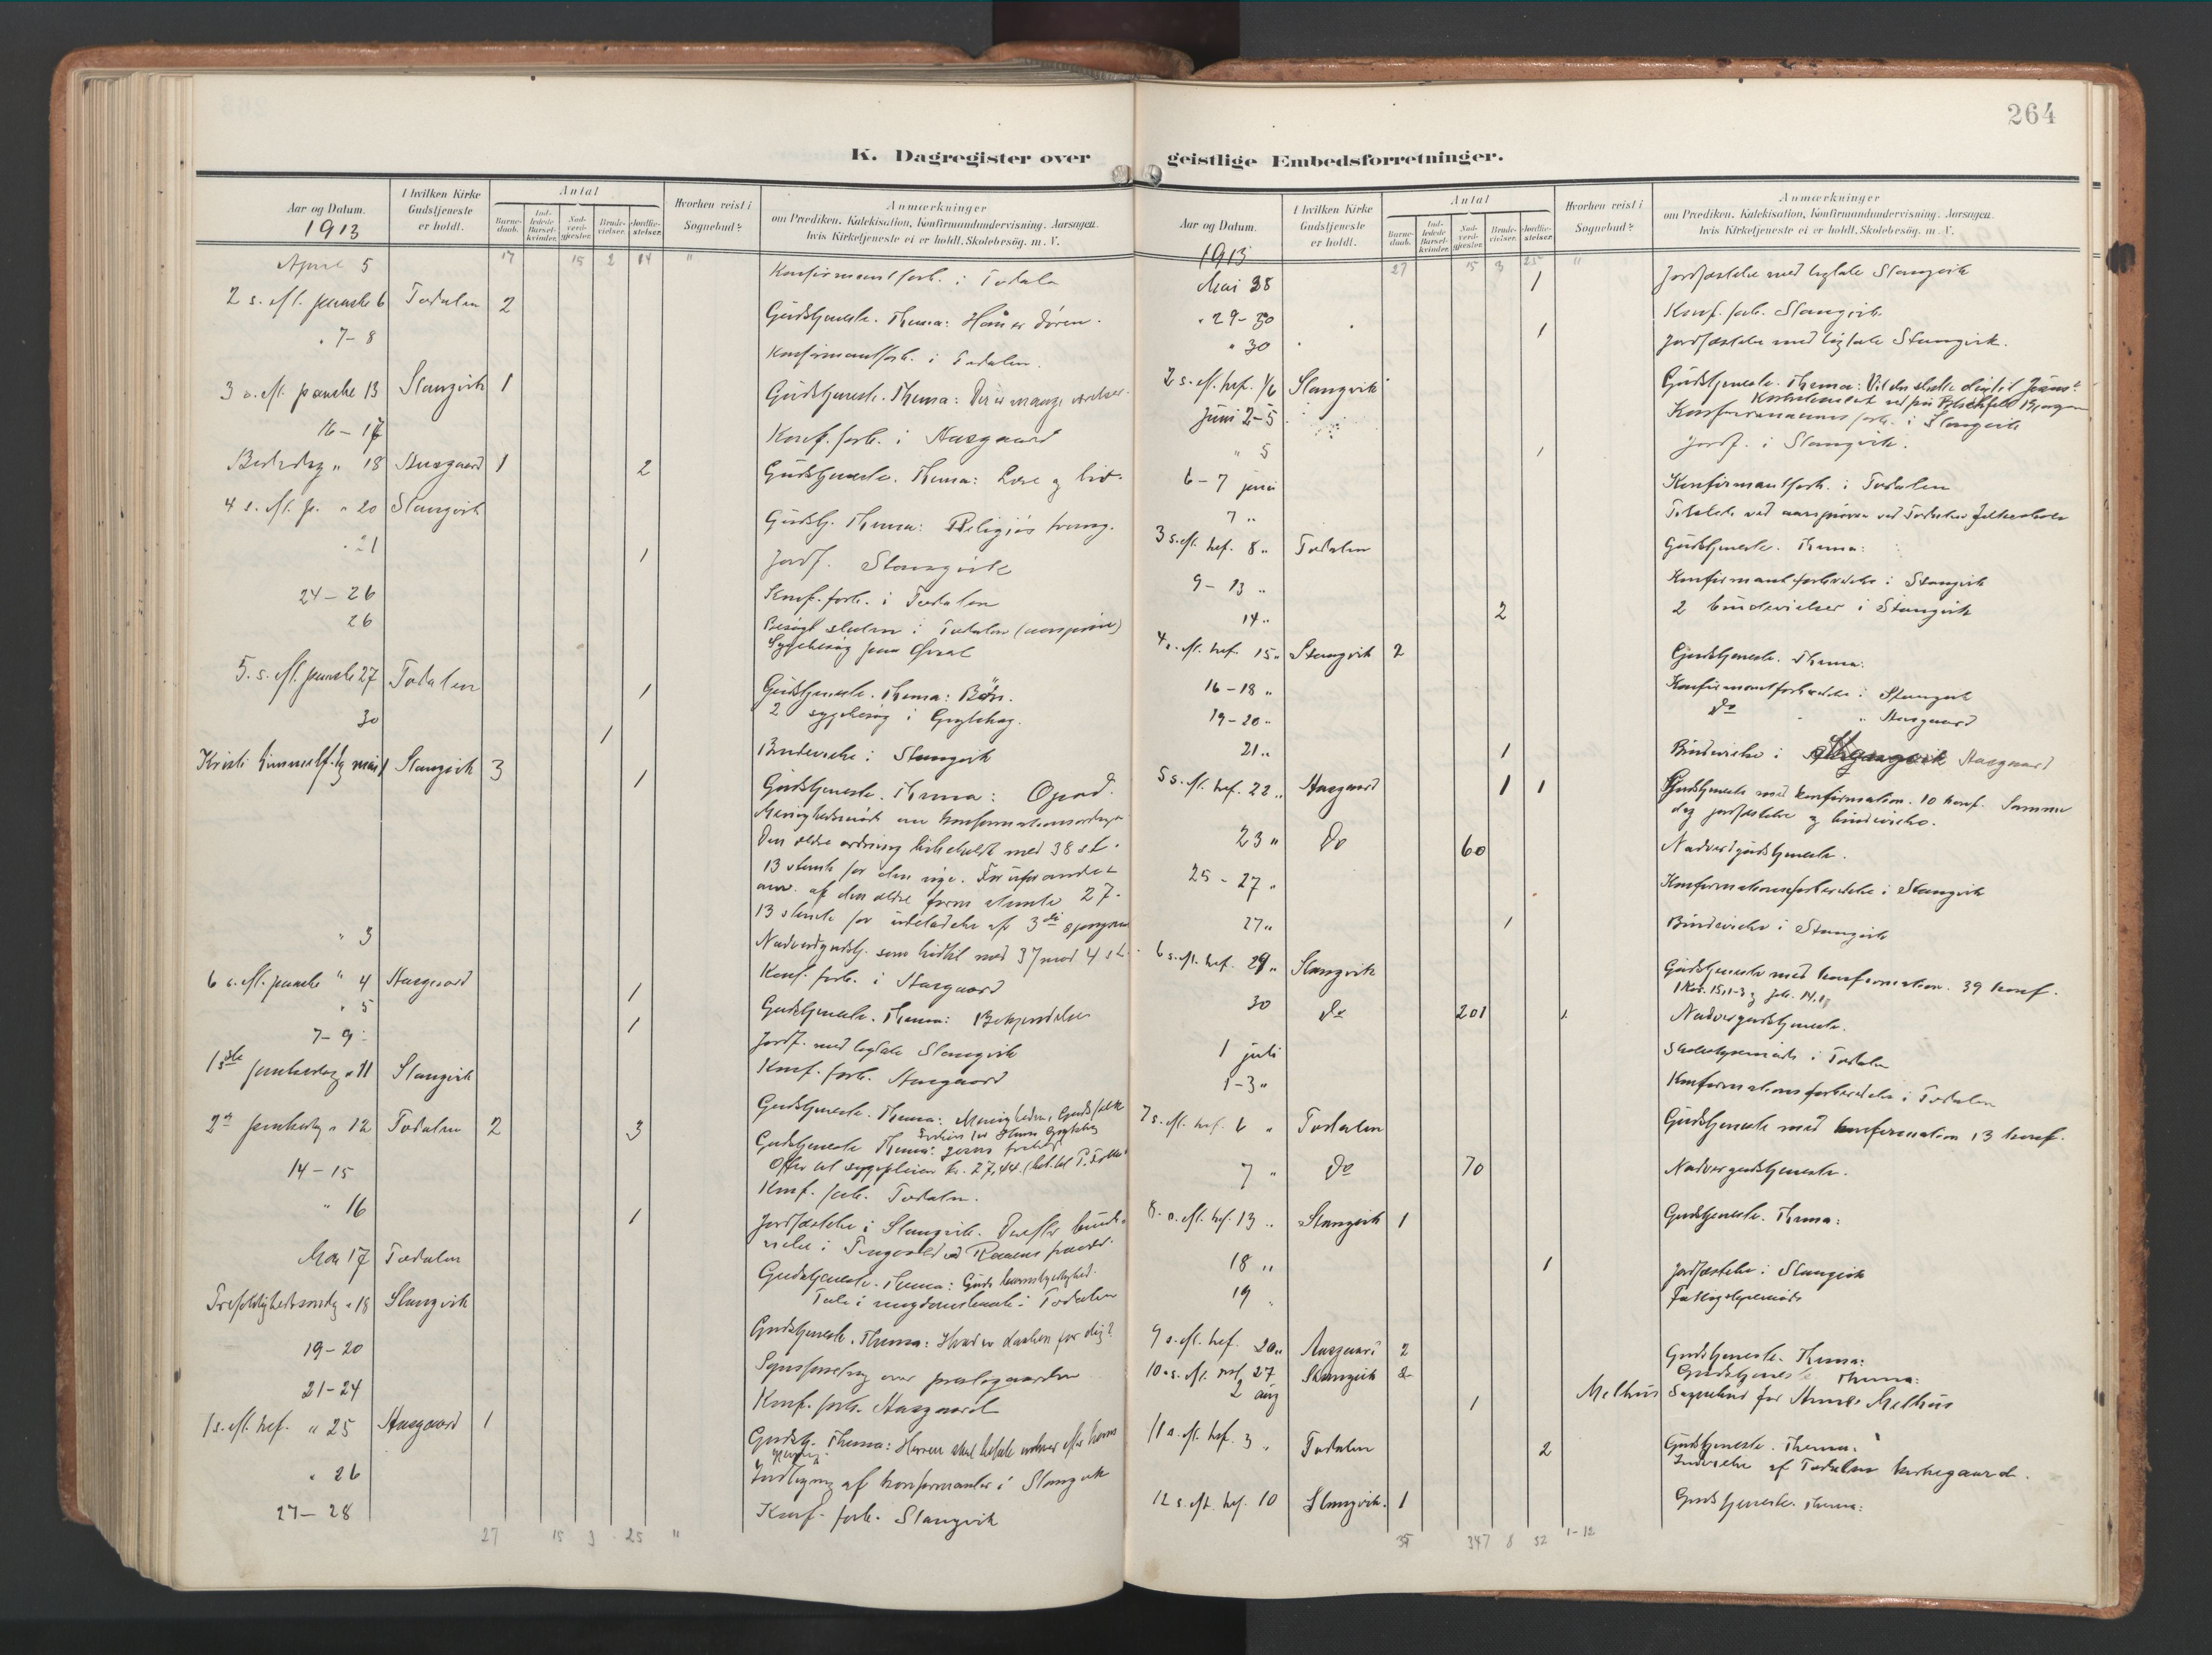 264
K. Dagregister over geistlige Embedsforretninger.
Aar og Datum. 1913
I hvilken Kirke Gudstjeneste er holdt.
Antal
Barnedaab. Indledede Barselkvinder. Nadverdgjester. Brudevielser. Jordfæstelser.
Hvorhen reist i Sognebud?
Anmærkninger
om Prædiken, Katekisation, Konfirmandundervisning, Aarsagen,
hvis Kirketjeneste ei er holdt, Skolebesög, m. V.
17 15 2 14 "
April 5 Konfirmantforb. i Todalen
2 s. eft. paaske 6 Todalen 2 Gudstjeneste. Thema: Han er døren.
" 7-8 Konfirmantforb. i Todalen.
3 s. eft. paaske 13 Stangvik 1 Gudstjeneste. Thema: Der er mange
16-17 Konf. forb. i Aasgaard
Bededag " 18 Aasgaard 1 2 Gudstjeneste. Thema: Lære og liv.
4 s. eft. p. " 20 Stangvik Gudstj. Thema: Religiøs
" 21 1 Jordf. Stangvik
24-26 Konf. forb. i Todalen
26 Besøgt skolen i Todalen
Sygebesøg
5. s. eft. paaske 27 Todalen 1 Gudstjeneste. Thema: Bøn.
30 2 sygebesøg i
1 Brudevielse i Stangvik
Kristi himmelf. dg mai 1 Stangvik 3 1 Gudstjeneste. Thema: Opad.
Menighedsmøde om konfirmationsordningen
Den ældre ordning bibeholdt med 38 st.
13 stemte for den nye. For uforandret
anv. af den ældre form stemte 27.
13 stemte for udeladelse af 3de spørgsmaal
Nadverdgudstj. som hidtil med 37 mod 4 st.
" 3 Konf. forb. i Aasgaard
6 s. eft. paaske " 4 Aasgaard 1 Gudstjeneste. Thema: Bekjendelse
" 5 1 Jordf. med ligtale Stangvik
7-9 Konf. forb. Aasgaard
1ste pinsedag " 11 Stangvik Gudstjeneste. Thema: Menigheden, Guds folk
2den pinsedag " 12 Todalen 2 3 Gudstjeneste Thema: Jesus
Offer til sygepleien kr. 27,44
14-15 Konf. forb. Todalen.
" 16 1 Jordfæstelse i Stangvik. Derefter brude-
vielse i
Mai 17 Todalen Gudstjeneste. Thema: Guds barmhjertighed.
Tale i ungdomslaget i Todalen
Trefoldighedssøndg " 18 Stangvik Gudstjeneste. Thema: Hvad er daaben for dig?
19-20 Synsforretning over prestegaarden
21-24 Konf. forb. Aasgaard
1 s. eft. tref. " 25 Aasgaard 1 Gudstj. Thema: Herren skal
" 26 Indtegning af konfirmanter i Stangvik
27-28 Konf. forb. Stangvik
27 15 3 25 "
Aar og Datum. 1913
I hvilken Kirke Gudstjeneste er holdt.
Antal
Barnedaab. Indledede Barselkvinder. Nadverdgjester. Brudevielser. Jordfæstelser.
Hvorhen reist i Sognebud?
Anmærkninger
om Prædiken, Katekisation, Konfirmandundervisning, Aarsagen,
hvis Kirketjeneste ei er holdt, Skolebesög, m. V.
27 15 3 25 "
Mai 28 1 Jordfæstelse med ligtale Stangvik
" 29-30 Konf. forb. Stangvik
" 30 1 Jordfæstelse med ligtale Stangvik.
2 s. eft. tref. 1/6 Stangvik Gudstjeneste. Thema: Vil du slutte dig til Jesus?
Juni 2-5 Konfirmanternes forb. i Stangvik
" 5 1 Jordf. i Stangvik.
6-7 juni Konfirmantforb. i Todalen
7 " Tilstede ved aarsprøven ved Todalens folkeskole
3 s. eft. tref. 8 " Todalen Gudstjeneste. Thema:
9-13 " Konfirmantforberedelse i Stangvik
14 " 2 2 brudevielser i Stangvik
4 s. eft. tref. 15 " Stangvik 2 Gudstjeneste. Thema:
16-18 " Konfirmantforberedelse i Stangvik
19-20 " do " Aasgaard
21 " 1 Brudevielse i Stangvik Aasgaard
5 s. eft. tref. 22 " Aasgaard 1 1 Gudstjeneste med konfirmation. 10 konf. Samme
dag jordfæstelse og brudevielse.
23 " Do 60 Nadverdgudstjeneste.
25-27 " Konfirmationsforberedelse i Stangvik
27 " 1 Brudevielse i Stangvik
6 s. eft. tref. 29 " Stangvik Gudstjeneste med konfirmation. 39 konf.
1 Kor. 15,1-3 og Joh. 14,1
30 Do 201 Nadvergudstjeneste.
1 juli Skolestyremøde i Todalen
1-3 " Konfirmationsforberedelse i Todalen
7 s. eft. tref. 6 " Todalen Gudstjeneste med konfirmation 13 konf.
7 " Do 70 Nadvergudstjeneste.
8. s. eft. tref. 13 " Stangvik 1 Gudstjeneste. Thema:
18 " 1 Jordfæstelse i Stangvik
19 " Fattigstyremøde
9 s. eft. tref. 20 " Aasgaard 2 Gudstjeneste. Thema:
10 s. eft. tref. 27 Stangvik 2 Gudstjeneste. Thema:
2 aug 1 Melhus Sognebud for Melhus
11 s. eft. tref. 3 " Todalen 2 Gudstjeneste. Thema:
Indvielse af Todalens kirkegaard.
12 s. eft. tref. 10 Stangvik. 1 Gudstjeneste. Thema:
35 347 8 32 1-12